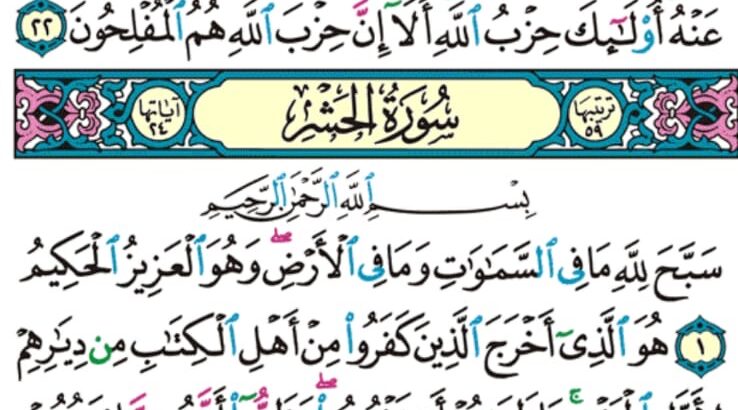 عَنْهُ أُوْلَٰٓئِكَ حِزْبُ ٱللَّهِ أَلَآ إِنَّ حِزْبَ ٱللَّهِ هُمُ ٱلْمُفْلِحُونَ ٢٢
ترتيبها ٥٩ سُورَةُ الحَشْرِ آياتها ٢٤
بِسْمِ ٱللَّهِ ٱلرَّحْمَٰنِ ٱلرَّحِيمِ
سَبَّحَ لِلَّهِ مَا فِى ٱلسَّمَٰوَٰتِ وَمَا فِى ٱلْأَرْضِ ۖ وَهُوَ ٱلْعَزِيزُ ٱلْحَكِيمُ
١ هُوَ ٱلَّذِىٓ أَخْرَجَ ٱلَّذِينَ كَفَرُوا۟ مِنْ أَهْلِ ٱلْكِتَٰبِ مِن دِيَٰرِهِمْ